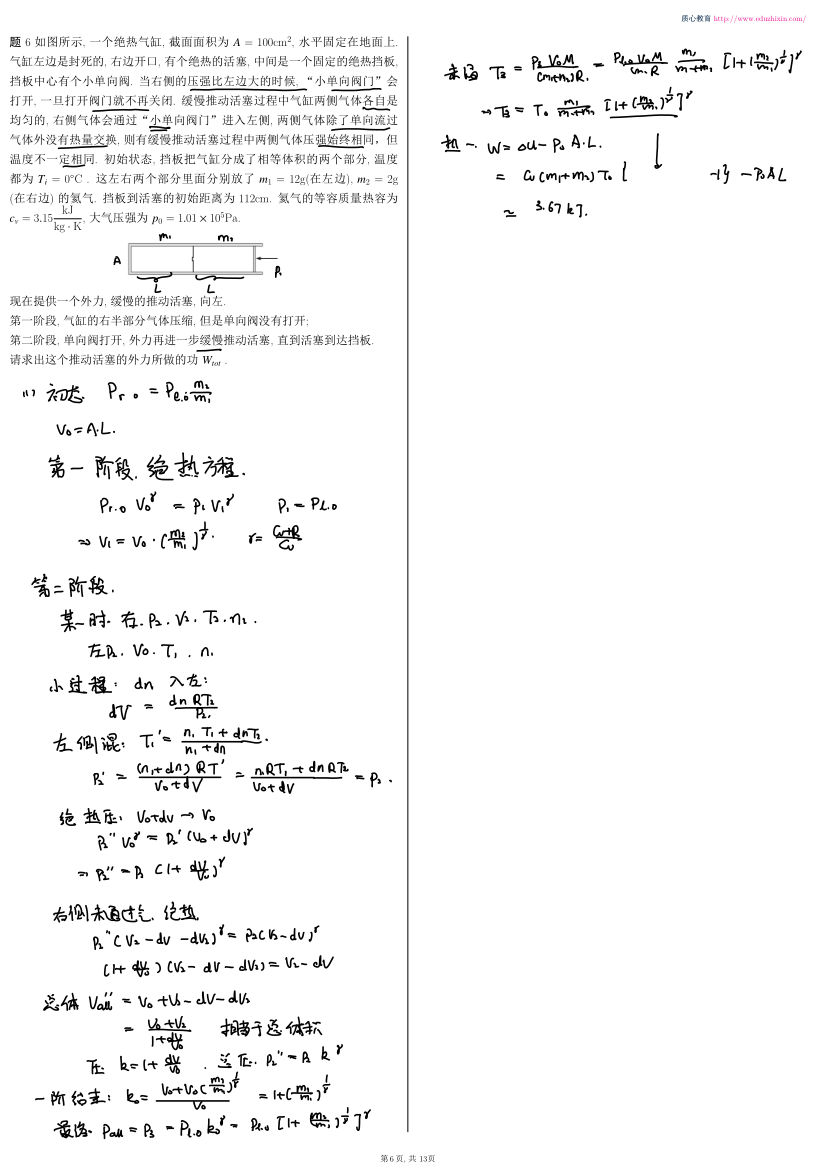 质心教育 http://www.eduzhixin.com/
题 6 如图所示, 一个绝热气缸, 截面面积为 A = 100cm², 水平固定在地面上.
气缸左边是封死的, 右边开口, 有个绝热的活塞, 中间是一个固定的绝热挡板,
挡板中心有个小单向阀. 当右侧的压强比左边大的时候, “小单向阀门” 会
打开, 一旦打开阀门就不再关闭. 缓慢推动活塞过程中气缸两侧气体各自是
均匀的, 右侧气体会通过 “小单向阀门” 进入左侧, 两侧气体除了单向流过
气体外没有热量交换, 则有缓慢推动活塞过程中两侧气体压强始终相同，但
温度不一定相同. 初始状态, 挡板把气缸分成了相等体积的两个部分, 温度
都为 Tᵢ = 0°C . 这左右两个部分里面分别放了 m₁ = 12g(在左边), m₂ = 2g
(在右边) 的氦气. 挡板到活塞的初始距离为 112cm. 氦气的等容质量热容为
cᵥ = 3.15 kJ/kg · K, 大气压强为 p₀ = 1.01 × 10⁵Pa.
m₁ m₂
A P.
L L
现在提供一个外力, 缓慢的推动活塞, 向左.
第一阶段, 气缸的右半部分气体压缩, 但是单向阀没有打开;
第二阶段, 单向阀打开, 外力再进一步缓慢推动活塞, 直到活塞到达挡板.
请求出这个推动活塞的外力所做的功 Wtot .
(1) 初态. Pr.0 = Pl.0 m₂/m₁
V₀=A.L.
第一阶段. 绝热方程.
Pr.0 V₀^γ = P₁V₁^γ P₁=Pl.0
⇒ V₁=V₀·(m₂/m₁)^1/γ. γ=Cv+R/Cv
第二阶段.
某一时. 右. P₂. V₂. T₂. n₂.
左P₂. V₀. T₁. n₁
小过程: dn 入左:
dV = dnRT₂/P₂.
左侧混: T₁'= n₁T₁+dnT₂/n₁+dn.
P₂' = (n₁+dn)RT'/V₀+dV = n₁RT₁+dnRT₂/V₀+dV = P₂.
绝热压: V₀+dV → V₀
P₂''V₀^γ = P₂'(V₀+dV)^γ
⇒ P₂''=P₂(1+dV/V₀)^γ
右侧未通过气. 绝热.
P₂''(V₂-dV-dV₂)^γ=P₂(V₂-dV)^γ
(1+dV/V₀)(V₂-dV-dV₂)=V₂-dV
总体 Vall'' = V₀+V₂-dV-dV₂
= V₀+V₂/1+dV/V₀ 相当于总体积
压 k=1+dV/V₀. 总压. P₂''=P₂k^γ
一阶结束: k₀=V₀+V₀(m₂/m₁)^1/γ/V₀ =1+(m₂/m₁)^1/γ
最后. Pall=P₃=Pl.0k₀^γ=Pl.0[1+(m₂/m₁)^1/γ]^γ
T₃=P₃V₀M/(m₁+m₂)R. = Pl.0V₀M/m₁R m₁/m₁+m₂ [1+(m₂/m₁)^1/γ]^γ
⇒ T₃=T₀ m₁/m₁+m₂ [1+(m₂/m₁)^1/γ]^γ
热一. W=ΔU-P₀A.L.
= Cv(m₁+m₂)T₀{ -1} -P₀AL
≃ 3.67kJ.
第 6 页, 共 13页